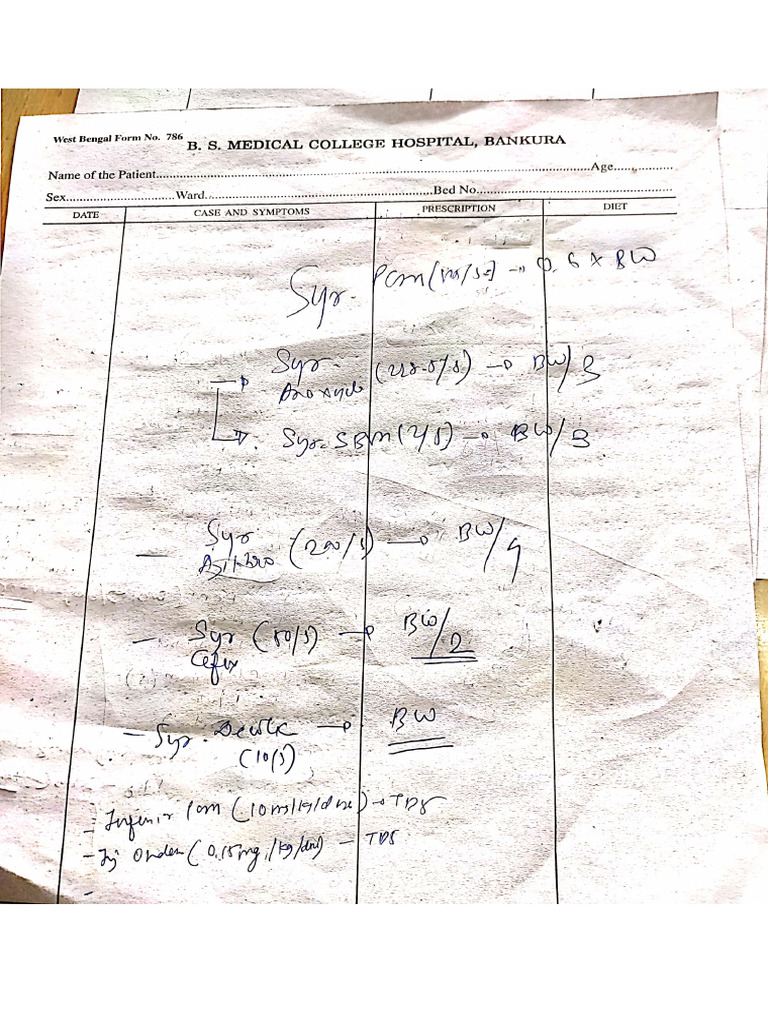 West Bengal Form No. 786
B. S. MEDICAL COLLEGE HOSPITAL, BANKURA
Name of the Patient Age
Sex Ward Bed No.
DATE CASE AND SYMPTOMS PRESCRIPTION DIET
Syr. PCM → 0.6 x BW
Syr. (228.5/5) → BW/3
Syr. (2/5) → BW/3
Syr (200/5) → BW/4
Azithro
Syr (50/5) → BW/2
Cefix
Syr. → BW
(10/5)
- PCM (10mg/kg/dose) → TDS
- Inj Ondem (0.15mg/kg/dose) - TDS